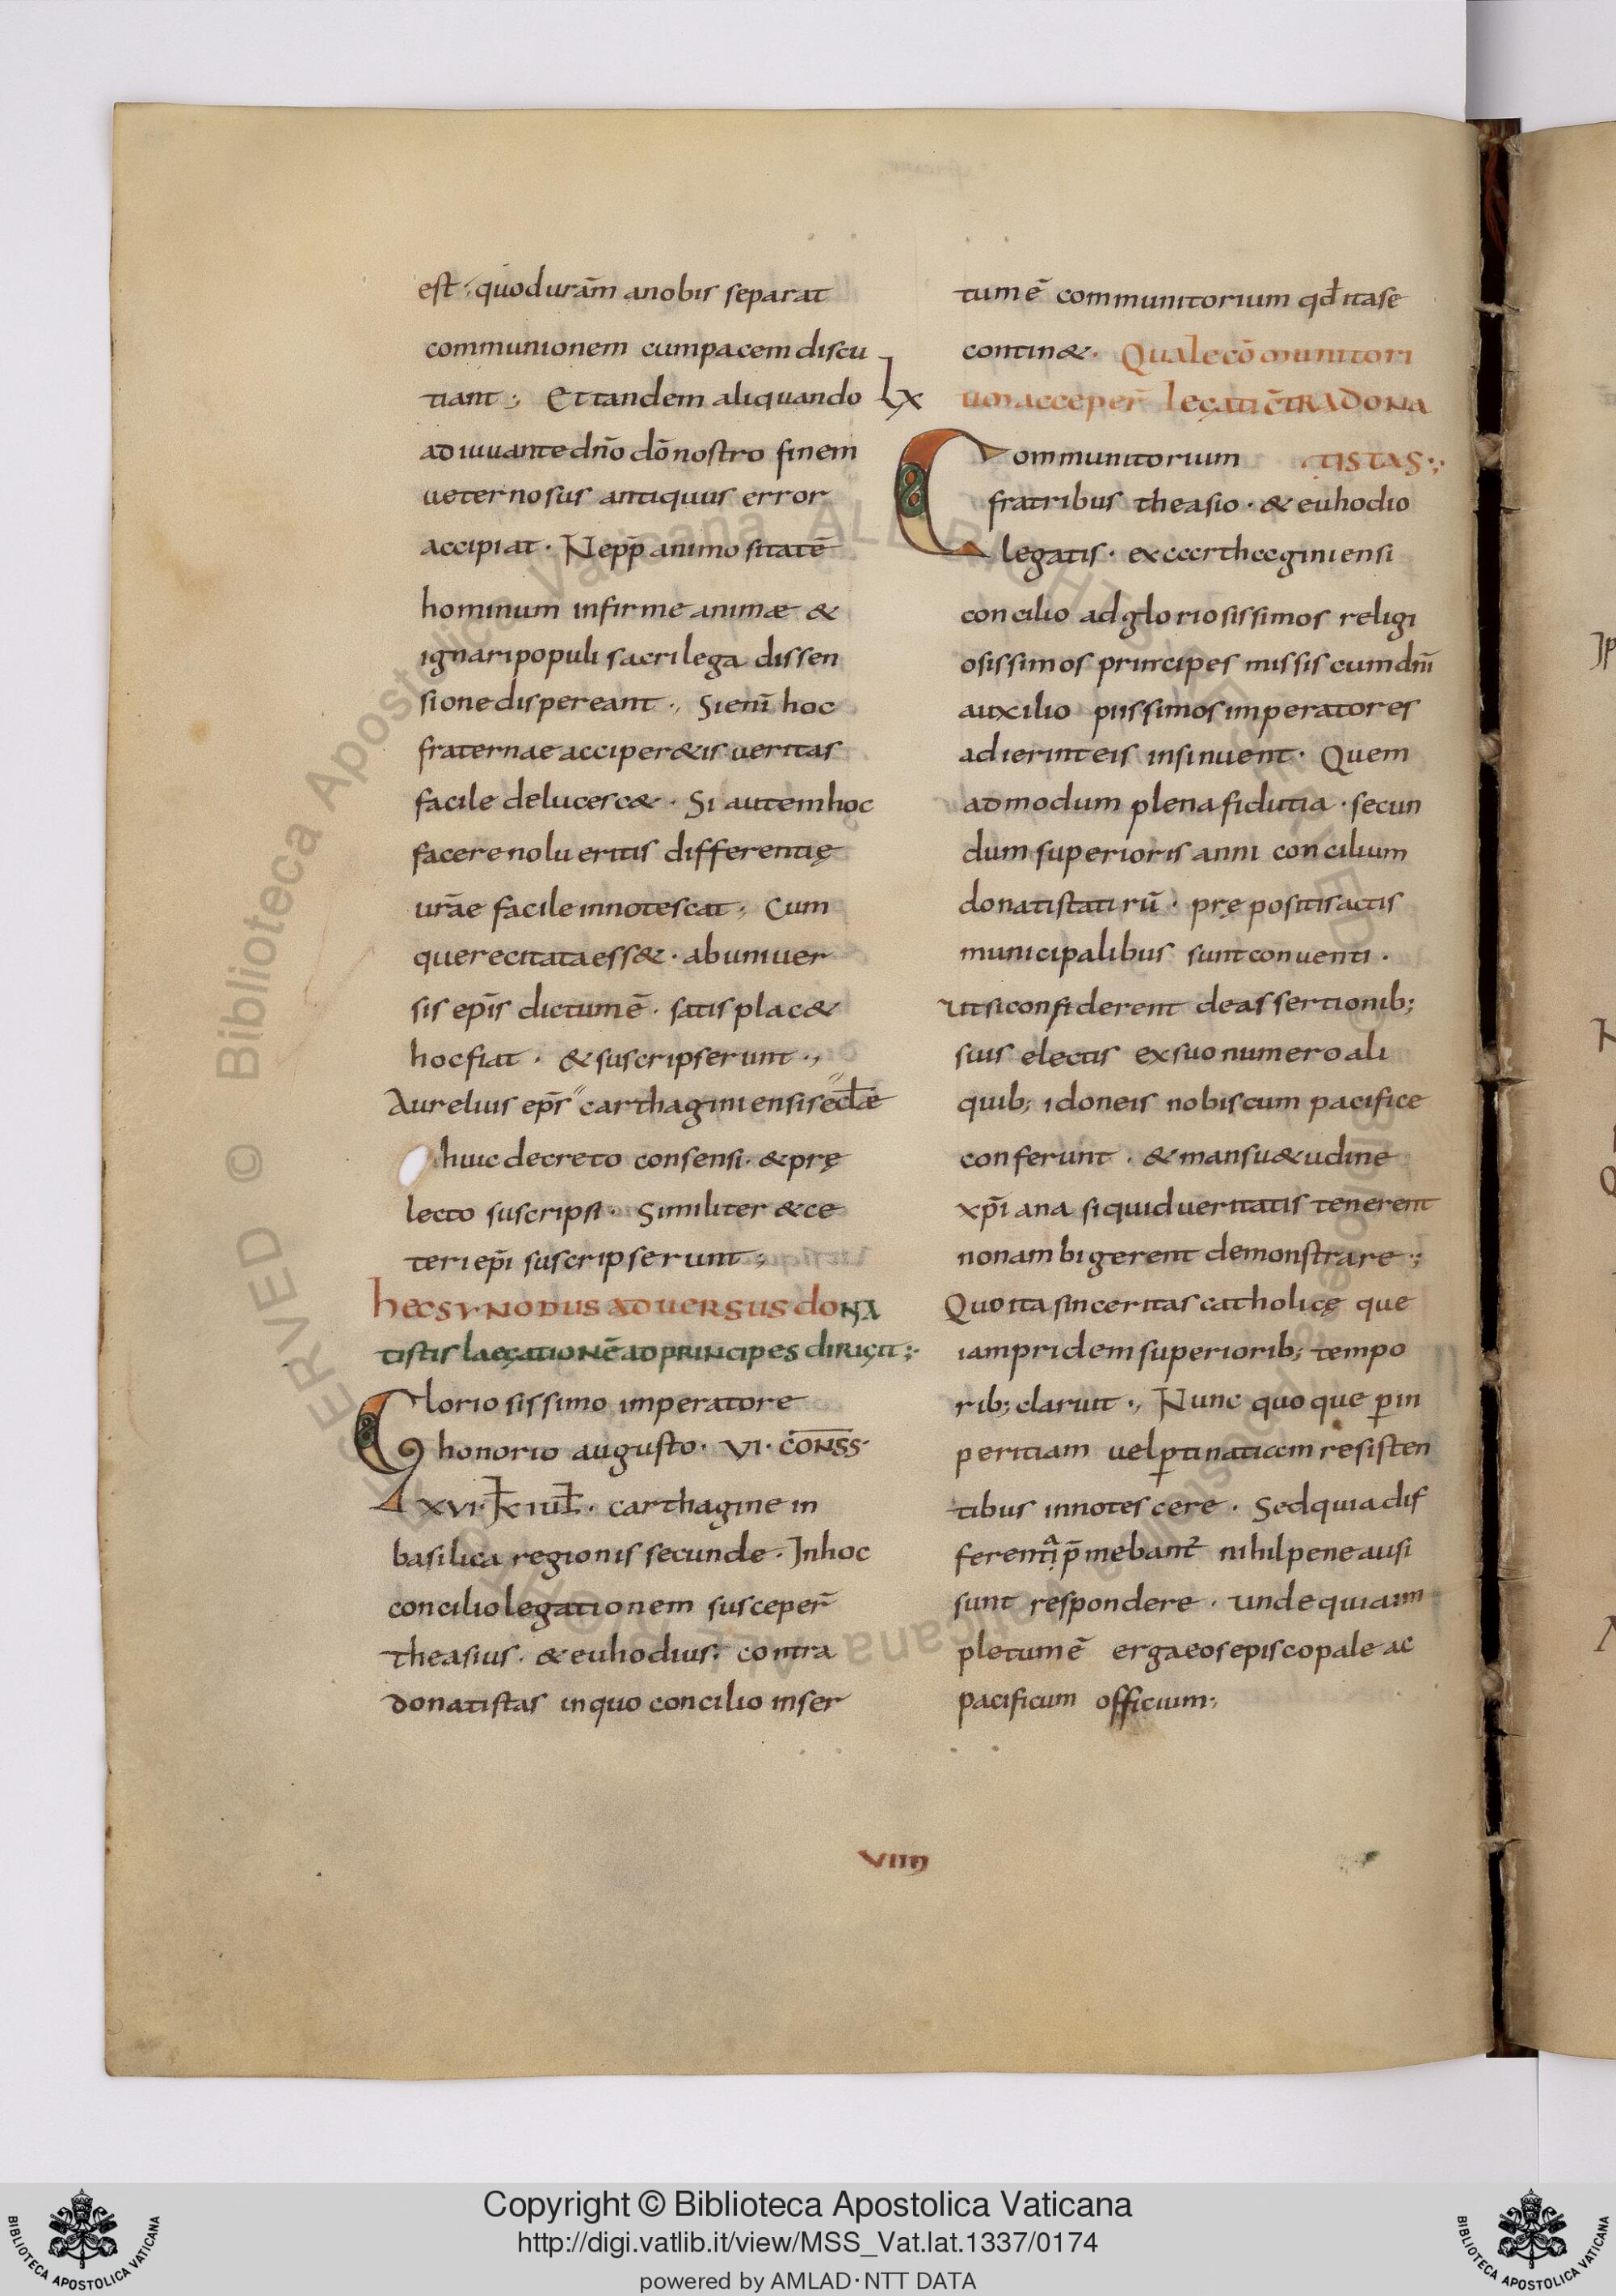 est · quod uram̅ a nobis separat
communionem cum pacem discu
tiant ; Et tandem aliquando
adiuuante dn̅o do̅ nostro finem
ueternosus antiquus error
accipiat · Ne pp̅ animositate̅
hominum infirme animæ &
ignari populi sacrilega dissen
sione dispereant ., Si eni̅ hoc
fraternae acciper&is ueritas
facile delucesc& · Si autem hoc
facere nolueritis differentię
ur̅ae facile innotescat ; Cum
que recitata ess& · ab uniuer
sis epi̅s dictum e̅ · satis plac&
hoc fiat · & suscripserunt .,
Aurelius epr̅ carthaginiensis eccl̅æ
huic decreto consensi · & prę
lecto suscripsi · Similiter & ce
teri epi̅ suscripserunt ;
hec synodus aduersus dona
tistis laegatione̅ ad principes dirigit ;
Gloriosissimo imperatore
honorio augusto · VI · CONSS̅ ·
XVI · K̅ IUL̅ · carthagine in
basilica regionis secunde · In hoc
concilio legationem susceper̅
theasius · & euhodius · contra
donatistas in quo concilio inser
tum e̅ communitorium qd̅ ita se
contin& · Quale co̅munitori
lx um acceper̅ legati c̅tra dona
tistas ;
Communitorium
fratribus theasio · & euhodio
legatis · ex carthaginiensi
concilio ad gloriosissimos religi
osissimos principes missis cum dni̅
auxilio piissimos imperatores
adierint eis insinuent · Quem
admodum plena fidutia · secun
dum superioris anni concilium
donatistarū · prępositis actis
municipalibus sunt conuenti ·
ut si confiderent de assertionib;
suis electis ex suo numero ali
quib; idoneis nobiscum pacifice
conferunt · & mansu&udine
xpi̅ana si quid ueritatis tenerent
non ambigerent demonstrare ;
Quo ita sinceritas catholicę que
iam pridem superiorib; tempo
rib; claruit ., Nunc quoque ꝑ in
peritiam uel ꝑtinatiam resisten
tibus innotescere · Sed quia dif
ferentia p̅mebant᷑ nihil pene ausi
sunt respondere · unde quia im
pletum e̅ erga eos episcopale ac
pacificum officium ;
VIIII
Copyright © Biblioteca Apostolica Vaticana
http://digi.vatlib.it/view/MSS_Vat.lat.1337/0174
powered by AMLAD·NTT DATA
BIBLIOTECA APOSTOLICA VATICANA
BIBLIOTECA APOSTOLICA VATICANA